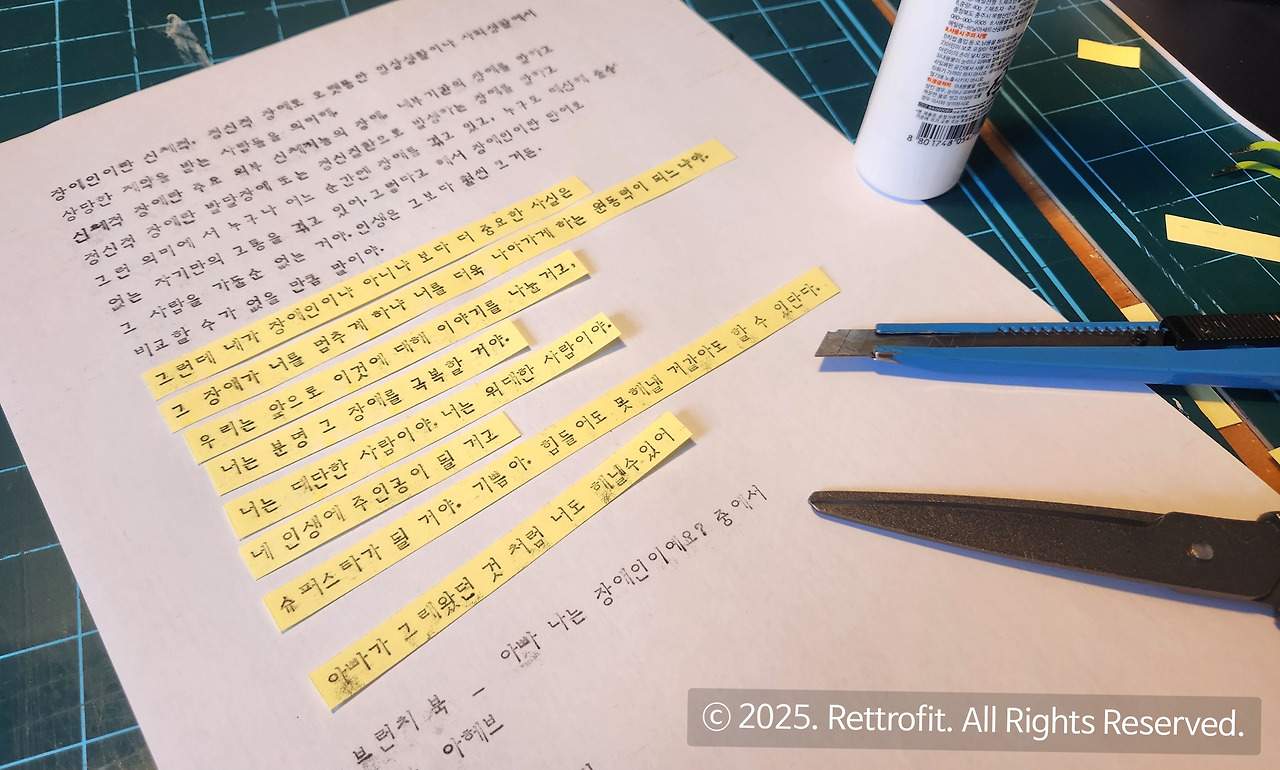 장애인이란 신체적, 정신적 장애로 오랫동안 일상생활이나 사회생활에서
상당한 제약을 받는 사람들을 의미해.
신체적 장애란 주요 외부 신체기능의 장애, 내부기관의 장애를 말하고
정신적 장애란 발달장애 또는 정신질환으로 발생하는 장애를 말하고
그런 의미에서 누구나 어느 순간엔 장애를 겪고 있고, 누구도 예상치 순수
없는 자기만의 고통을 겪고 있어. 그렇다고 해서 장애인이란 단어로
그 사람을 가둘순 없는 거야. 인생은 그보다 훨씬 크거든.
비교할 수가 없을 만큼 말이야.
그런데 네가 장애인이냐 아니냐 보다 더 중요한 사실은
그 장애가 너를 멈추게 하냐 너를 더욱 나아가게 하는 원동력이 되느냐야.
우리는 앞으로 이것에 대해 이야기를 나눌 거고,
너는 분명 그 장애를 극복할 거야.
너는 대단한 사람이야. 너는 위대한 사람이야.
네 인생에 주인공이 될 거고
슈퍼스타가 될 거야. 기쁨아. 힘들어도 못해낼 거같아도 할 수 있단다.
아빠가 그래왔던 것 처럼 너도 해낼수있어
브런치 북 - 아빠 나는 장애인이에요? 중에서
아헤브
8 801748
© 2025. Rettrofit. All Rights Reserved.